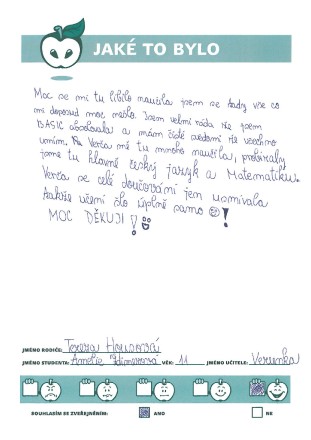 JAKÉ TO BYLO
Moc se mi tu líbilo naučila jsem se tady vše co
mi doposud moc nešlo. Jsem velmi ráda že jsem
BASIC absolvovala a mám čisté svědomí že všechno
umím. Verča mě tu mnoho naučila, probíraly
jsme tu hlavně český jazyk a Matematiku.
Verča se celé doučování jen usmívala
takže učení šlo úplně samo
MOC DĚKUJI!
JMÉNO RODIČE: Tereza
JMÉNO STUDENTA: Amélie VĚK: 11 JMÉNO UČITELE: Verunka
SOUHLASÍM SE ZVEŘEJNĚNÍM: ANO NE